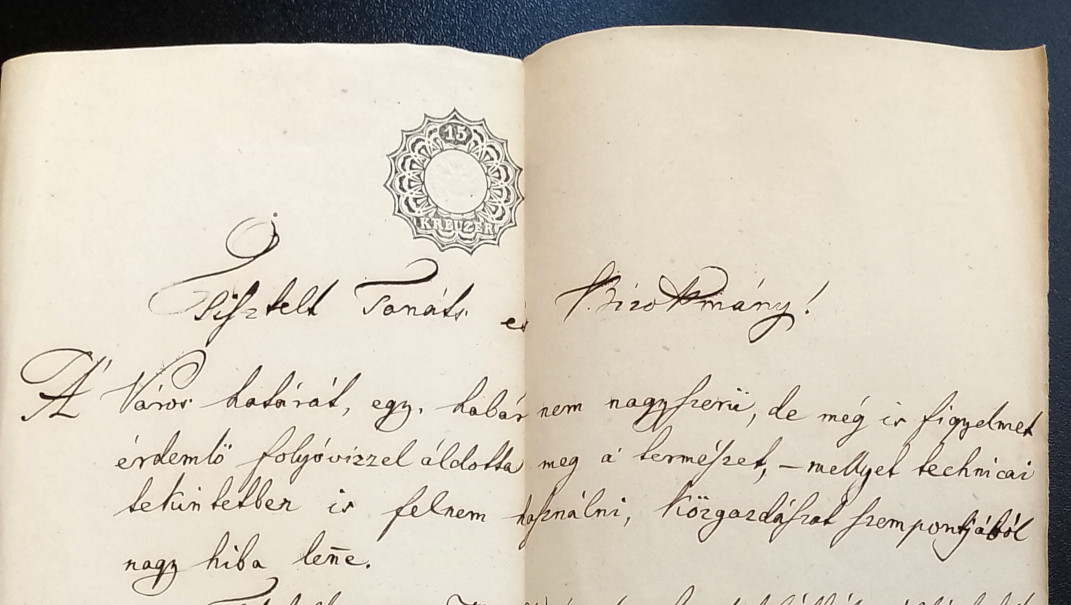 15
KREUZER
Tisztelt Tanáts és Bizotmány!
A' Város határát, egy, habár nem nagyszerü, de még is figyelmet
érdemlö folyóvizzel áldotta meg a' természet, – mellyet technicai
tekintetben is fel nem használni, közgazdászat szempontjából
nagy hiba leñe.